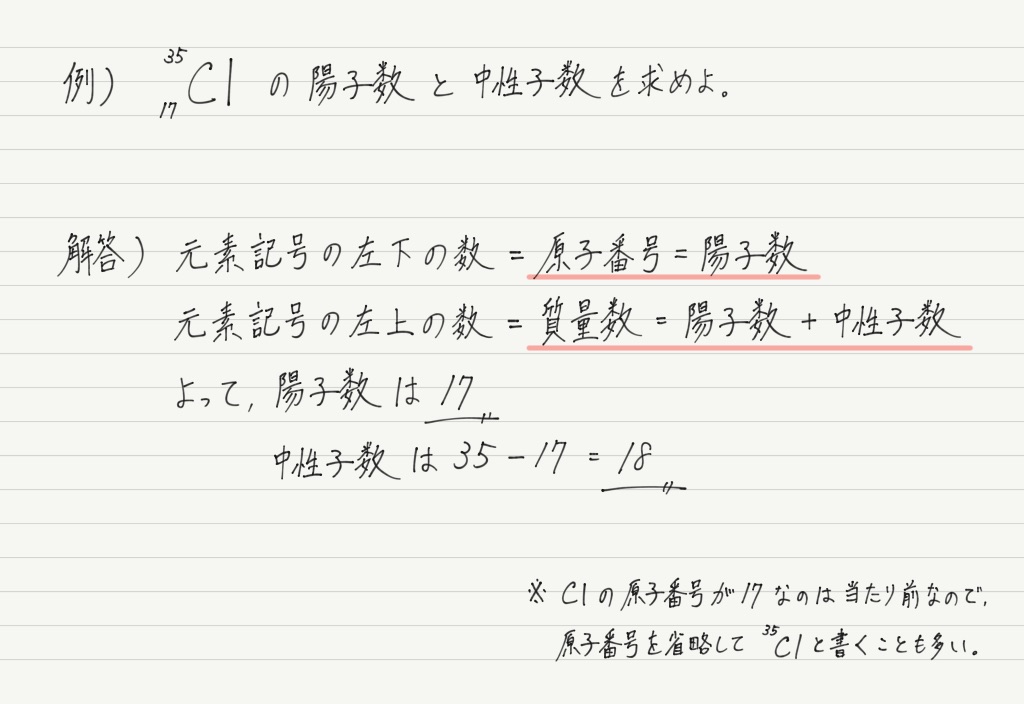 例) ³⁵₁₇Cl の 陽子数 と 中性子数 を求めよ。
解答) 元素記号の左下の数 = 原子番号 = 陽子数
元素記号の左上の数 = 質量数 = 陽子数 + 中性子数
よって, 陽子数 は 17
中性子数 は 35 - 17 = 18
※ Clの原子番号が17なのは当たり前なので,
原子番号を省略して ³⁵Clと書くことも多い。